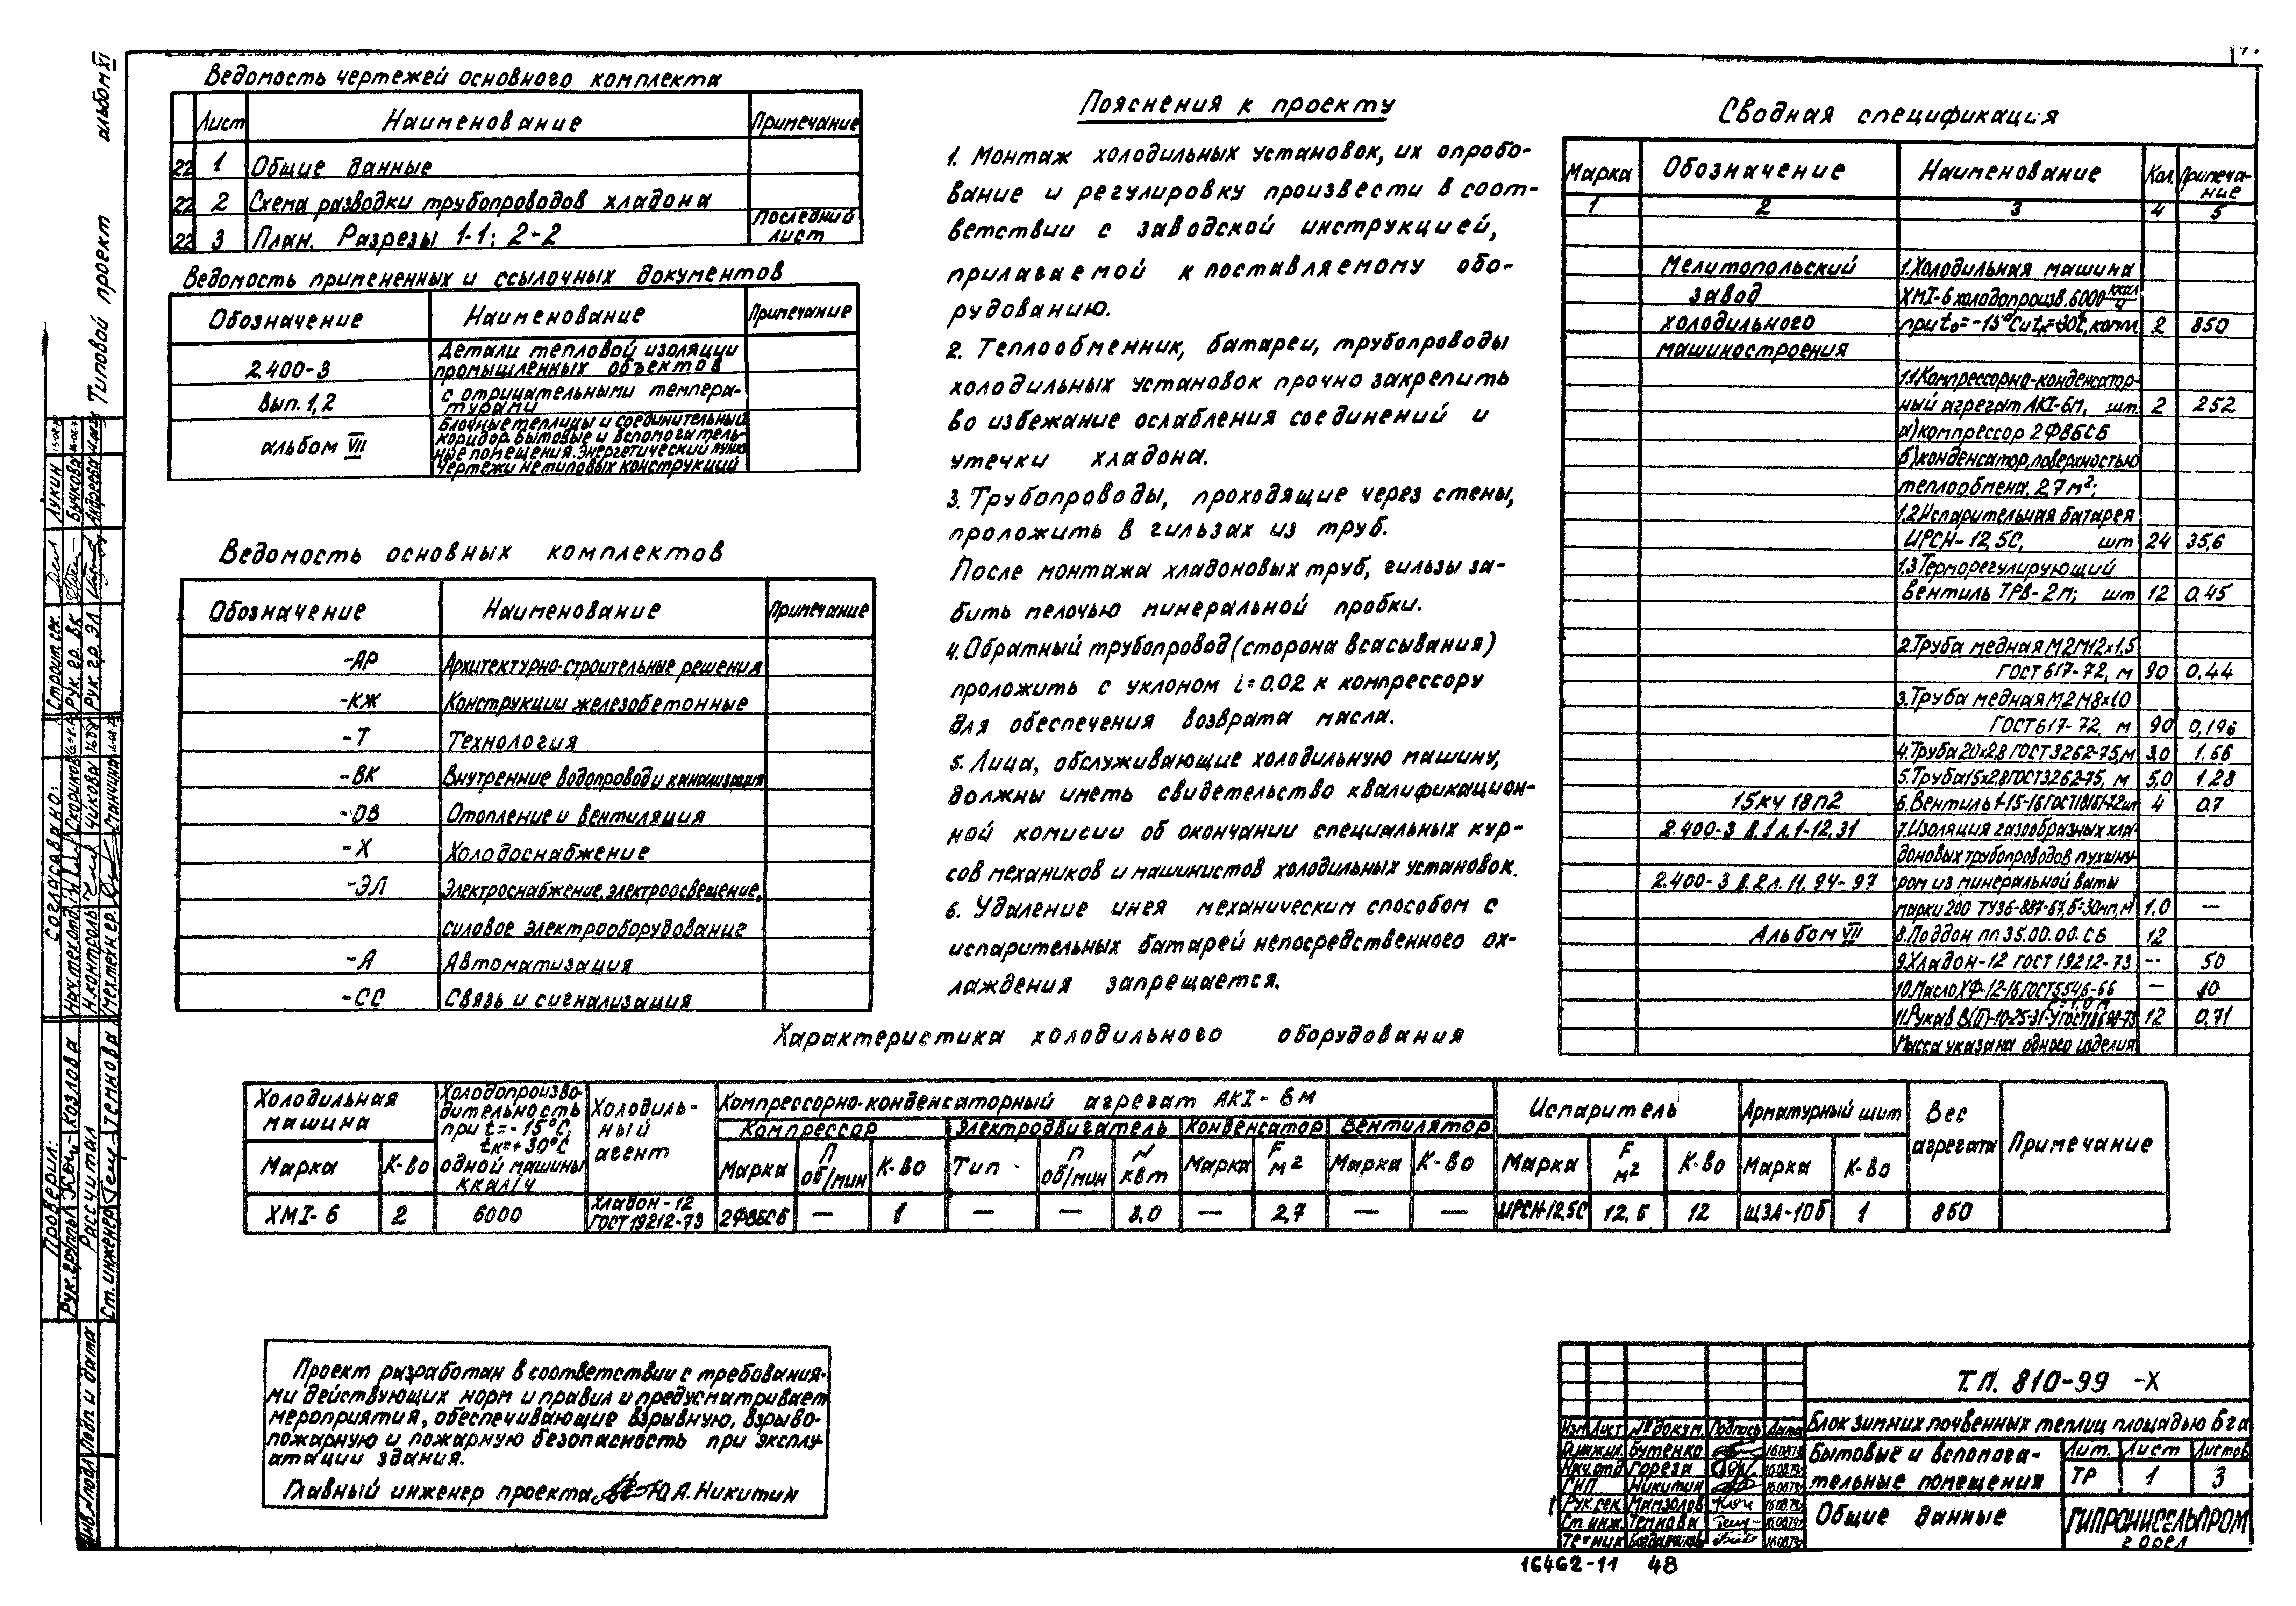 Ведомость чертежей основного комплекта
Лист Наименование Примечание
22 1 Общие данные
22 2 Схема разводки трубопроводов хладона
22 3 План. Разрезы 1-1; 2-2 Последний лист
Ведомость примененных и ссылочных документов
Обозначение Наименование Примечание
2.400-3 Детали тепловой изоляции
промышленных объектов
вып. 1,2 с отрицательными темпера-
турами
альбом VII Блочные теплицы и соединительный
коридор. Бытовые и вспомогатель-
ные помещения. Энергетический пункт
Чертежи нетиповых конструкций
Ведомость основных комплектов
Обозначение Наименование Примечание
-АР Архитектурно-строительные решения
-КЖ Конструкции железобетонные
-Т Технология
-ВК Внутренние водопровод и канализация
-ОВ Отопление и вентиляция
-Х Холодоснабжение
-ЭЛ Электроснабжение, электроосвещение,
силовое электрооборудование
-А Автоматизация
-СС Связь и сигнализация
Пояснения к проекту
1. Монтаж холодильных установок, их опробо-
вание и регулировку произвести в соот-
ветствии с заводской инструкцией,
прилагаемой к поставляемому обо-
рудованию.
2. Теплообменник, батареи, трубопроводы
холодильных установок прочно закрепить
во избежание ослабления соединений и
утечки хладона.
3. Трубопроводы, проходящие через стены,
проложить в гильзах из труб.
После монтажа хладоновых труб, гильзы за-
бить мелочью минеральной пробки.
4. Обратный трубопровод (сторона всасывания)
проложить с уклоном i=0.02 к компрессору
для обеспечения возврата масла.
5. Лица, обслуживающие холодильную машину,
должны иметь свидетельство квалификацион-
ной комисии об окончании специальных кур-
сов механиков и машинистов холодильных установок.
6. Удаление инея механическим способом с
испарительных батарей непосредственного ох-
лаждения запрещается.
Сводная спецификация
Марка Обозначение Наименование Кол. Примеча-
ние
1 2 3 4 5
Мелитопольский 1. Холодильная машина
завод ХМ1-6 холодопроизв. 6000 ккал/ч
холодильного при t₀=-15°С и tк=+30°С, компл 2 850
машиностроения
1.1 Компрессорно-конденсатор-
ный агрегат АК1-6М, шт. 2 252
а) компрессор 2ФВБСБ
б) конденсатор, поверхностью
теплообмена, 2,7 м²;
1.2 Испарительная батарея
ИРСН-12,5С, шт 24 35,6
1.3 Терморегулирующий
вентиль ТРВ-2М; шт 12 0.45
2. Труба медная М2М12х1,5
ГОСТ 617-72, м 90 0.44
3. Труба медная М2М8х1.0
ГОСТ 617-72, м 90 0,196
4. Труба 20х2.8 ГОСТ 3262-75, м 3.0 1.66
5. Труба 15х2.8 ГОСТ 3262-75, м 5,0 1.28
15кч 18п2 6. Вентиль 1-15-16 ГОСТ 18161-72 шт 4 0.7
2.400-3 В.1 л.1-12,31 7. Изоляция газообразных хла-
доновых трубопроводов пухшну-
2.400-3 В.2 л. 11. 94-97 ром из минеральной ваты
марки 200 ТУ36-887-67, б=30мм, м³ 1.0 —
Альбом VII 8. Поддон ПП 35.00.00.СБ 12
9. Хладон-12 ГОСТ 19212-73 -- 50
10. Масло ХФ-12-16 ГОСТ 5546-66 — 10
ℓ=1,0 м
11. Рукав В(II)-10-25-31-У ГОСТ 18698-73 12 0,71
Масса указана одного изделия
Характеристика холодильного оборудования
Холодильная машина Холодопроизво-
дительность
при t=-15°С,
tк=+30°С
одной машины
ккал/ч Холодиль-
ный
агент Компрессорно-конденсаторный агрегат АК1-6М Испаритель Арматурный щит Вес
агрегата Примечание
Компрессор Электродвигатель Конденсатор Вентилятор
Марка К-во Марка П об/мин К-во Тип п об/мин N квт Марка F м² Марка К-во Марка F м² К-во Марка К-во
ХМ1-6 2 6000 Хладон-12
ГОСТ 19212-73 2ФВБСБ — 1 — — 3.0 — 2,7 — — ИРСН-12,5С 12,5 12 ЩЗА-10б 1 850
Проект разработан в соответствии с требования-
ми действующих норм и правил и предусматривает
мероприятия, обеспечивающие взрывную, взрыво-
пожарную и пожарную безопасность при эксплу-
атации здания.
Главный инженер проекта Ю.А. Никитин
Т.П. 810-99 -Х
Блок зимних почвенных теплиц площадью 6 га
Изм Лист № докум. Подпись Дата
Гл.инж.п. Бутенко 16.08.79г
Нач.отд Гореза 16.08.79г
ГИП Никитин 16.08.79г
Рук.сек. Мамзолов 16.08.79г
Ст.инж. Темнова 16.08.79г
Техник 16.08.79г
Бытовые и вспомога-
тельные помещения
Лит. Лист Листов
ТР 1 3
Общие данные
ГИПРОНИСЕЛЬПРОМ
г. Орел
16462-11 48
Типовой проект альбом XI
Согласовано:
Строит. сек. Лукин
Рук. гр. ВК Бычкова
Рук. гр. ЭЛ Андреева
Нач. тех. отд.
Н. контроль Чикова
Мех. тех. н. ер.
Проверил:
Рук. группы Козлова
Рассчитал
Ст. инженер Темнова
Инв. № подл. Подп. и дата